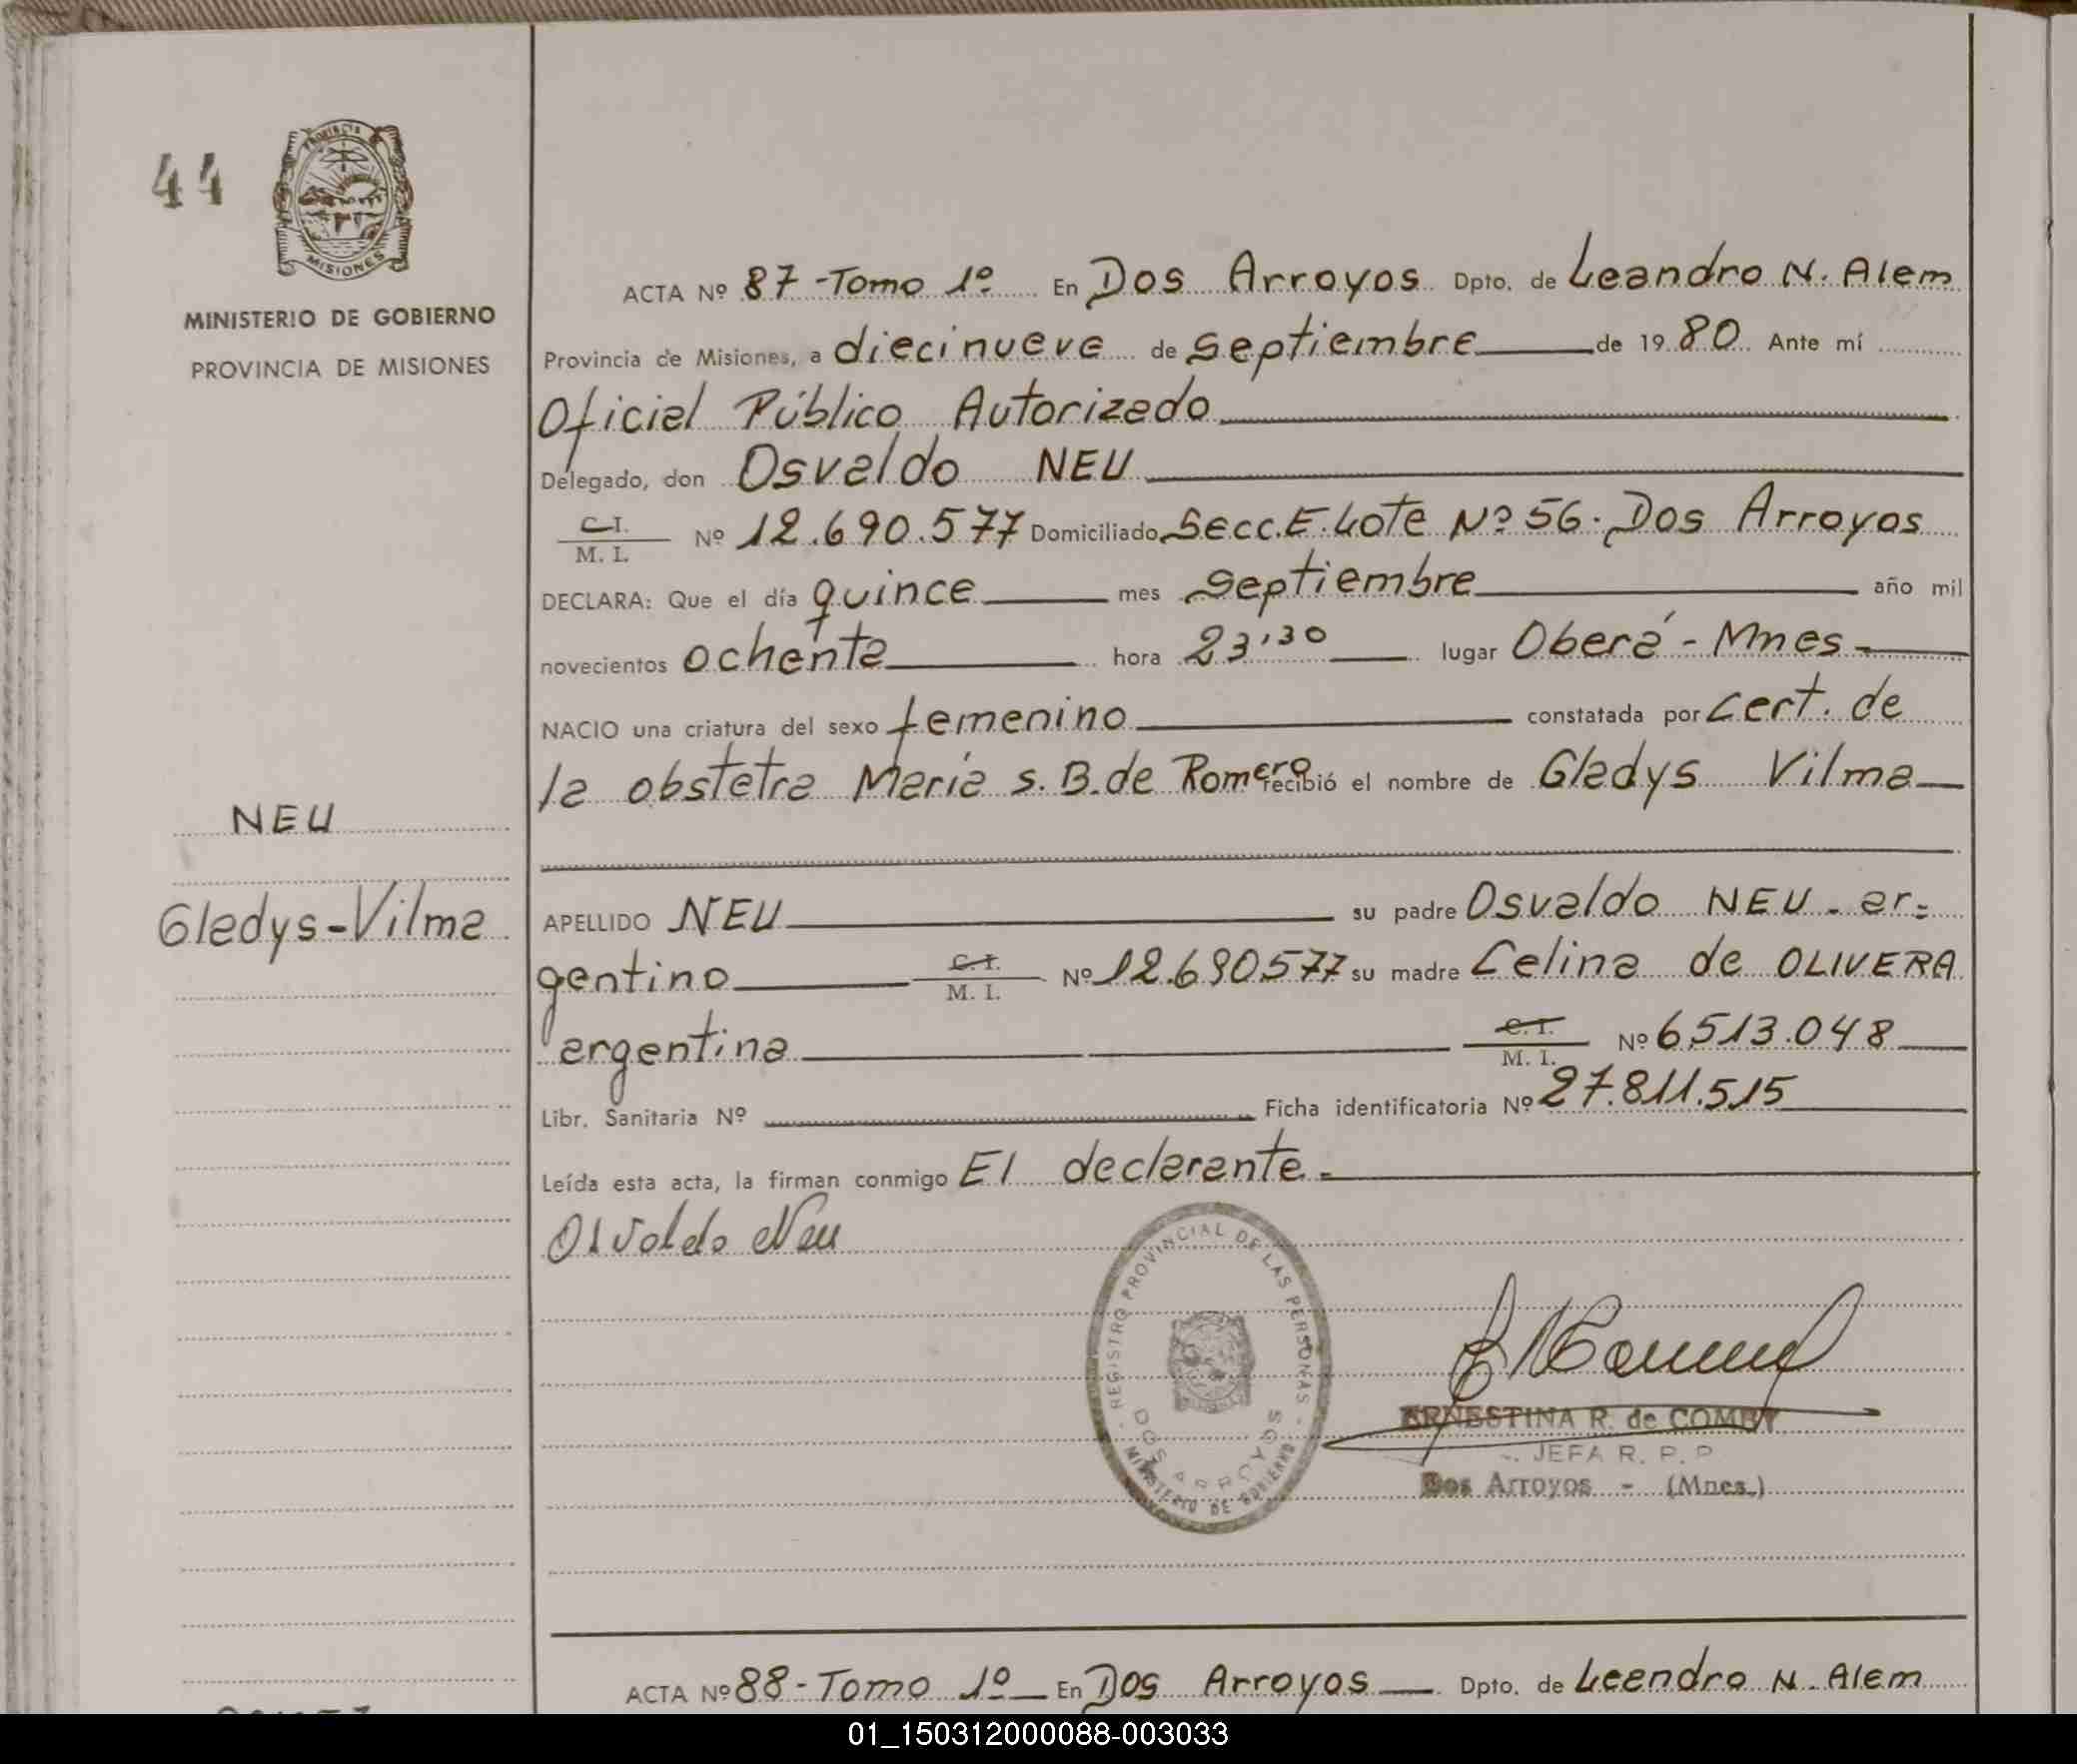 44
PROVINCIA
MISIONES
MINISTERIO DE GOBIERNO
PROVINCIA DE MISIONES
ACTA Nº 87 - Tomo 1º En Dos Arroyos Dpto. de Leandro N. Alem
Provincia de Misiones, a diecinueve de Septiembre de 1980 Ante mí
Oficial Público Autorizado
Delegado, don Osvaldo NEU
C.I.
M. I. Nº 12.690.577 Domiciliado Secc. E. Lote Nº 56. Dos Arroyos
DECLARA: Que el día quince mes Septiembre año mil
novecientos ochenta hora 23,30 lugar Oberá - Mnes -
NACIO una criatura del sexo femenino constatada por Cert. de
la obstetra María S. B. de Romero recibió el nombre de Gladys Vilma
NEU
Gladys-Vilma
APELLIDO NEU su padre Osvaldo NEU - ar=
gentino C.I. M. I. Nº 12.690.577 su madre Celina de OLIVERA
argentina C.I. M. I. Nº 6.513.048
Libr. Sanitaria Nº Ficha identificatoria Nº 27.811.515
Leída esta acta, la firman conmigo El declarante.-
Osvaldo Neu
REGISTRO PROVINCIAL DE LAS PERSONAS
DOS ARROYOS
MINISTERIO DE GOBIERNO
ERNESTINA R. de COMBY
JEFA R. P. P.
Dos Arroyos - (Mnes.)
ACTA Nº 88 - Tomo 1º En Dos Arroyos Dpto. de Leandro N. Alem
01_150312000088-003033